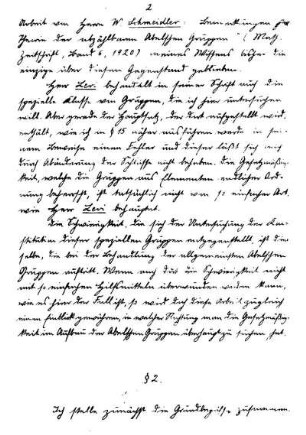 2
Arbeit von Herrn W. Schmeidler: Bemerkungen zur
Theorie der abzählbaren Abelschen Gruppen (Math.
Zeitschrift, Band 6, 1920) meines Wissens bisher die
einzige über diesen Gegenstand geblieben.
Herr Levi behandelt in seiner Schrift auch die
spezielle Klasse von Gruppen, die ich hier untersuchen
will. Aber gerade der Hauptsatz, der dort aufgestellt wird,
enthält, wie ich in § 15 näher ausführen werde in sei-
nem Beweise einen Fehler und dieser läßt sich auch
durch Abänderung der Schlüsse nicht beheben. Die Gesetzmäßig-
keit, welche die Gruppen aus Elementen endlicher Ord-
nung beherrscht, ist tatsächlich nicht von so einfacher Art,
wie Herr Levi behauptet.
Die Schwierigkeit, die sich der Untersuchung der Kon-
stitution dieser speziellen Gruppen entgegenstellt, ist die-
selbe, die bei der Behandlung der allgemeinsten Abelschen
Gruppen auftritt. Wenn auch die Schwierigkeit nicht
mit so einfachen Hilfsmitteln überwunden werden kann,
wie es hier der Fall ist, so wird doch diese Arbeit zugleich
einen Einblick gewähren, in welcher Richtung man die Gesetzmäßig-
keit im Aufbau der Abelschen Gruppen überhaupt zu suchen hat.
§ 2.
Ich stelle zunächst die Grundbegriffe zusammen.